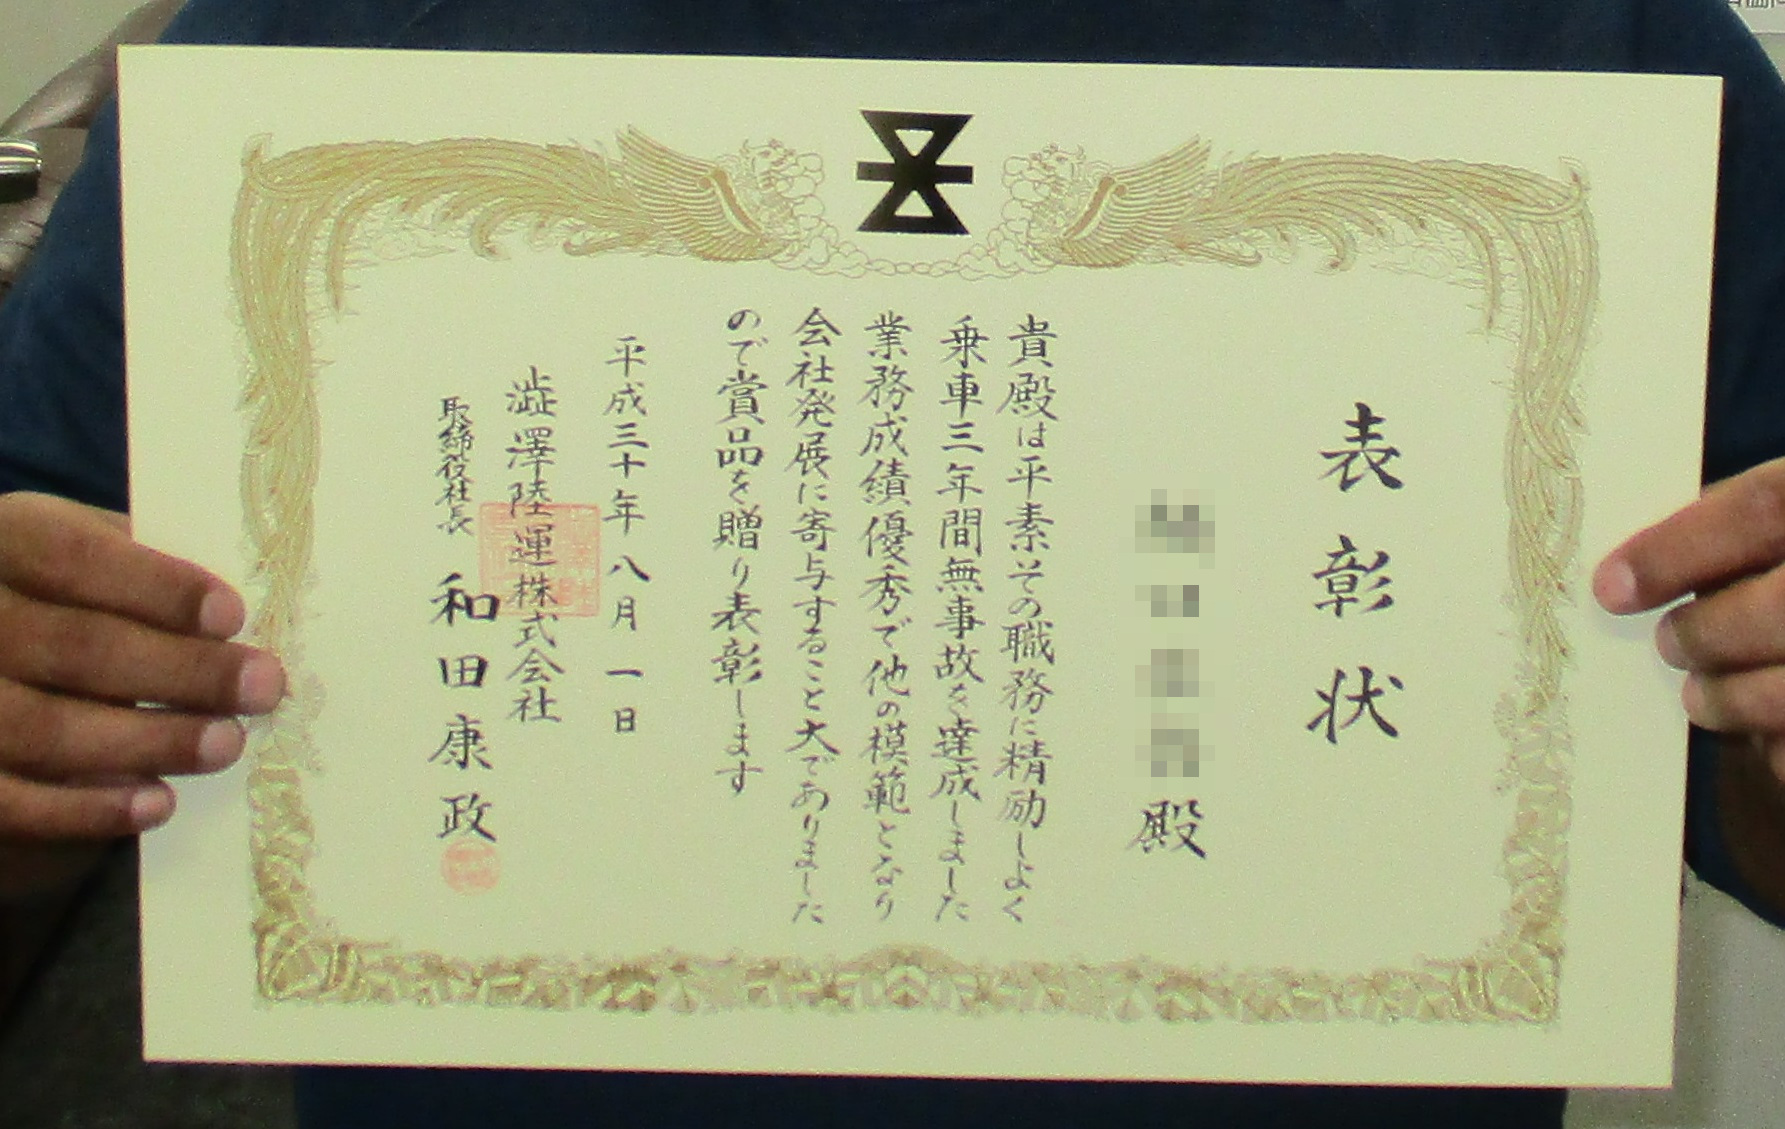 表彰状
殿
貴殿は平素その職務に精励しよく
乗車三年間無事故を達成しました
業務成績優秀で他の模範となり
会社発展に寄与すること大でありました
ので賞品を贈り表彰します
平成三十年八月一日
澁澤陸運株式会社
取締役社長 和田康政